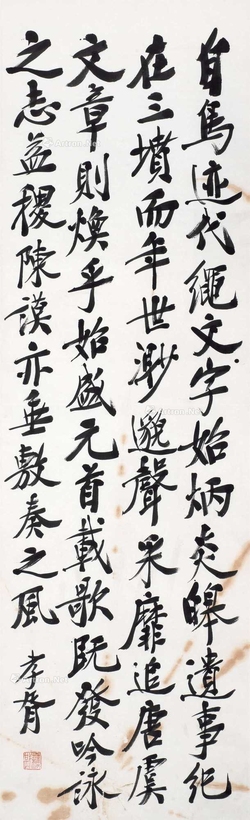 自鳥迹代繩文字始炳炎皞遺事紀
在三墳而年世渺邈聲采靡追唐虞
文章則煥乎始盛元首載歌既發吟詠
之志益稷陳謨亦垂敷奏之風
孝胥